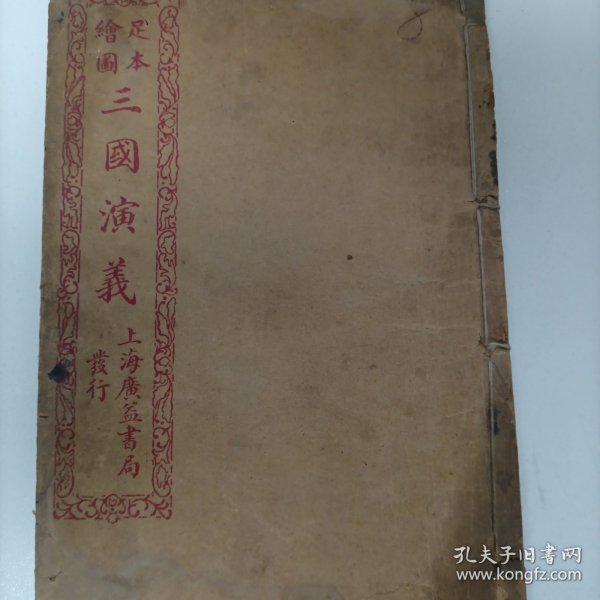 足本
繪圖
三國演義
上海廣益書局
發行
孔夫子旧书网
www.kongfz.com